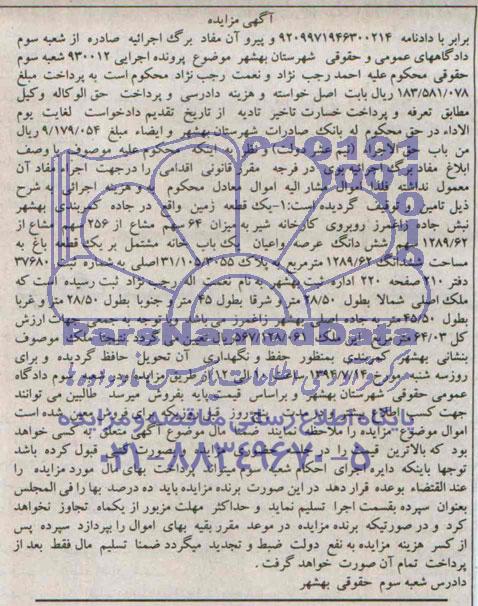 آگهی مزایده
برابر با دادنامه ۹۲۰۹۹۷۱۹۴۶۳۰۰۲۱۴ و پیرو آن مفاد برگ اجرائیه صادره از شعبه سوم
دادگاههای عمومی و حقوقی شهرستان بهشهر موضوع پرونده اجرایی ۹۳۰۰۱۲ شعبه سوم
حقوقی محکوم علیه احمد رجب نژاد و نعمت رجب نژاد محکوم است به پرداخت مبلغ
۱۸۳/۵۸۱/۰۷۸ ریال بابت اصل خواسته و هزینه دادرسی و پرداخت حق الوکاله وکیل
مطابق تعرفه و پرداخت خسارت تاخیر تادیه از تاریخ تقدیم دادخواست لغایت یوم
الاداء در حق محکوم له بانک صادرات شهرستان بهشهر و ایضاء مبلغ ۹/۱۷۹/۰۵۴ ریال
من باب حق الاجراء (نیم عشر دولت) و نظر به اینکه محکوم علیه موصوف با وصف
ابلاغ مفاد برگ اجرائیه بوی در فرجه مقرر قانونی اقدامی را درجهت اجراء مفاد آن
معمول نداشته فلذا اموال مشار الیه اموال معادل محکوم به و هزینه اجرائی به شرح
ذیل تامین و توقیف گردیده است:۱-یک قطعه زمین واقع در جاده کمربندی بهشهر
نبش جاده زاغمرز روبروی کارخانه شیر به میزان ۶۴ سهم مشاع از ۲۵۶ سهم مشاع از
۱۲۸۹/۶۲ سهم شش دانگ عرصه واعیان یک باب خانه مشتمل بر یک قطعه باغ به
مساحت ششدانگ ۱۲۸۹/۶۲ مترمربع به پلاک اصلی به شماره ثبت ۳۷۶۸۰
دفتر ۲۱۰ صفحه ۲۲۰ اداره ثبت بهشهر به نام نعمت اله رجب نژاد ثبت رسیده است که
ملک اصلی شمالا بطول ۲۸/۵۰ متر و شرقا بطول ۴۵ متر و جنوبا بطول ۲۸/۵۰ متر و غربا
بطول ۴۵/۵۰ متر به جاده اصلی بهشهر زاغمرز می باشد. با توجه به جمعی جهات ارزش
کل ۶۴/۰۳ متر مربع این ملک ۵۶۷/۱۲۸/۰۶۱ ریال تعیین می گردد نتیجتا ملک موصوف
بنشانی بهشهر کمربندی بمنظور حفظ و نگهداری آن تحویل حافظ گردیده و برای
روزسه شنبه مورخ ۱۳۹۴/۷/۱۴ ساعت ۱۰ الی ۱۲ از طریق مزایده و در شعبه سوم دادگاه
عمومی حقوقی شهرستان بهشهر و براساس قیمت پایه بفروش میرسد طالبین می توانند
جهت کسب اطلاع بیشتر و در مدت روز قبل از روزیکه برای فروش معین شده است
اموال موضوع مزایده را ملاحظه نمایند ضمنا مال موضوع آگهی متعلق به کسی خواهد
بود که بالاترین قیمت را در جلسه حضوری مزایده و بصورت کتبی قبول کرده باشد
توجها باینکه دایره اجرای احکام شعبه سوم میتواند پرداخت بهای مال مورد مزایده را
عند القتضاء بوعده قرار دهد در این صورت برنده مزایده باید ده درصد بها را فی المجلس
بعنوان سپرده بقسمت اجرا تسلیم نماید و حداکثر مهلت مزبور از یکماه تجاوز نخواهد
کرد و در صورتیکه برنده مزایده در موعد مقرر بقیه بهای اموال را بپردازد سپرده پس
از کسر هزینه مزایده به نفع دولت ضبط و تجدید میگردد ضمنا تسلیم مال فقط بعد از
پرداخت تمام آن صورت خواهد گرفت.
دادرس شعبه سوم حقوقی بهشهر
ParsNamadData
پایگاه اطلاع رسانی مناقصه و مزایده
۰۲۱-۸۸۳۴۹۶۷۰-۵